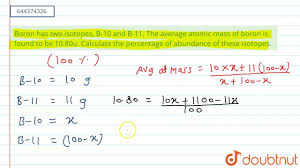 644374326
Boron has two isotopes, B-10 and B-11. The average atomic mass of boron is
found to be 10.80u. Calculate the percentage of abundance of these isotopes.
(100 %)
B-10 = 10 g
B-11 = 11 g
B-10 = x
B-11 = (100-x)
Avg at Mass = 10×x+11(100-x)
x+100-x
10.80 = 10x+1100-11x
100
doubtnut